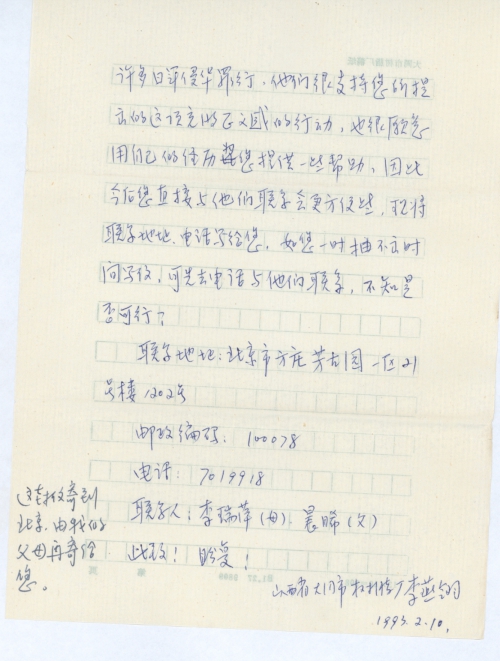 许多日军侵华罪行，他们很支持您所提
出的这项充满正义感的行动，也很愿意
用自己的经历帮您提供一些帮助，因此
今后您直接与他们联系会更方便些，我将
联系地址、电话写给您，如您一时抽不出时
间写信，可先去电话与他们联系，不知是
否可行？
联系地址：北京市方庄芳古园一区21
号楼1202号
邮政编码：100078
电话：7019918
联系人：李瑞萍（母） 晨晞（父）
此致！ 盼复！
山西省大同市 李燕
1993.2.10.
这封信寄到
北京，由我的
父母再寄给
您。